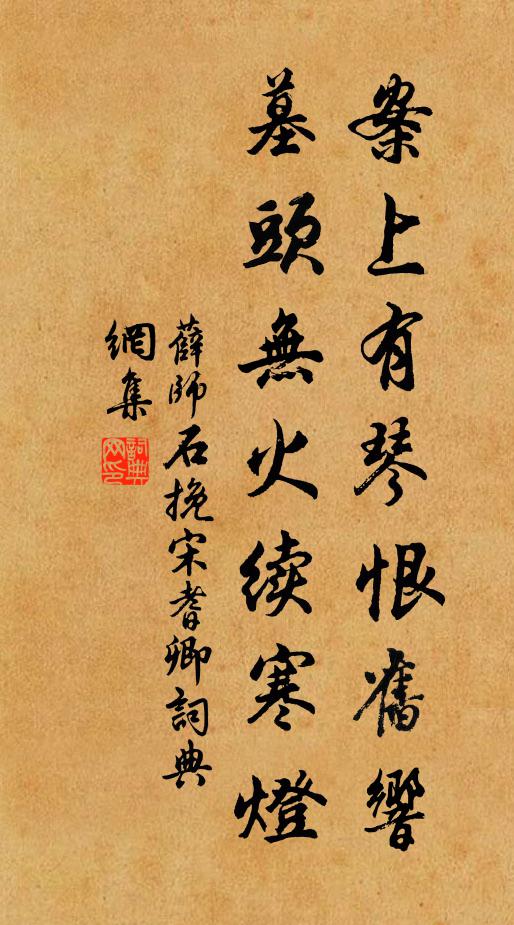 案上有琴恨舊響
墓頭無火续寒燈
薛師石挽宋耆卿詞典
網集
詞典網印